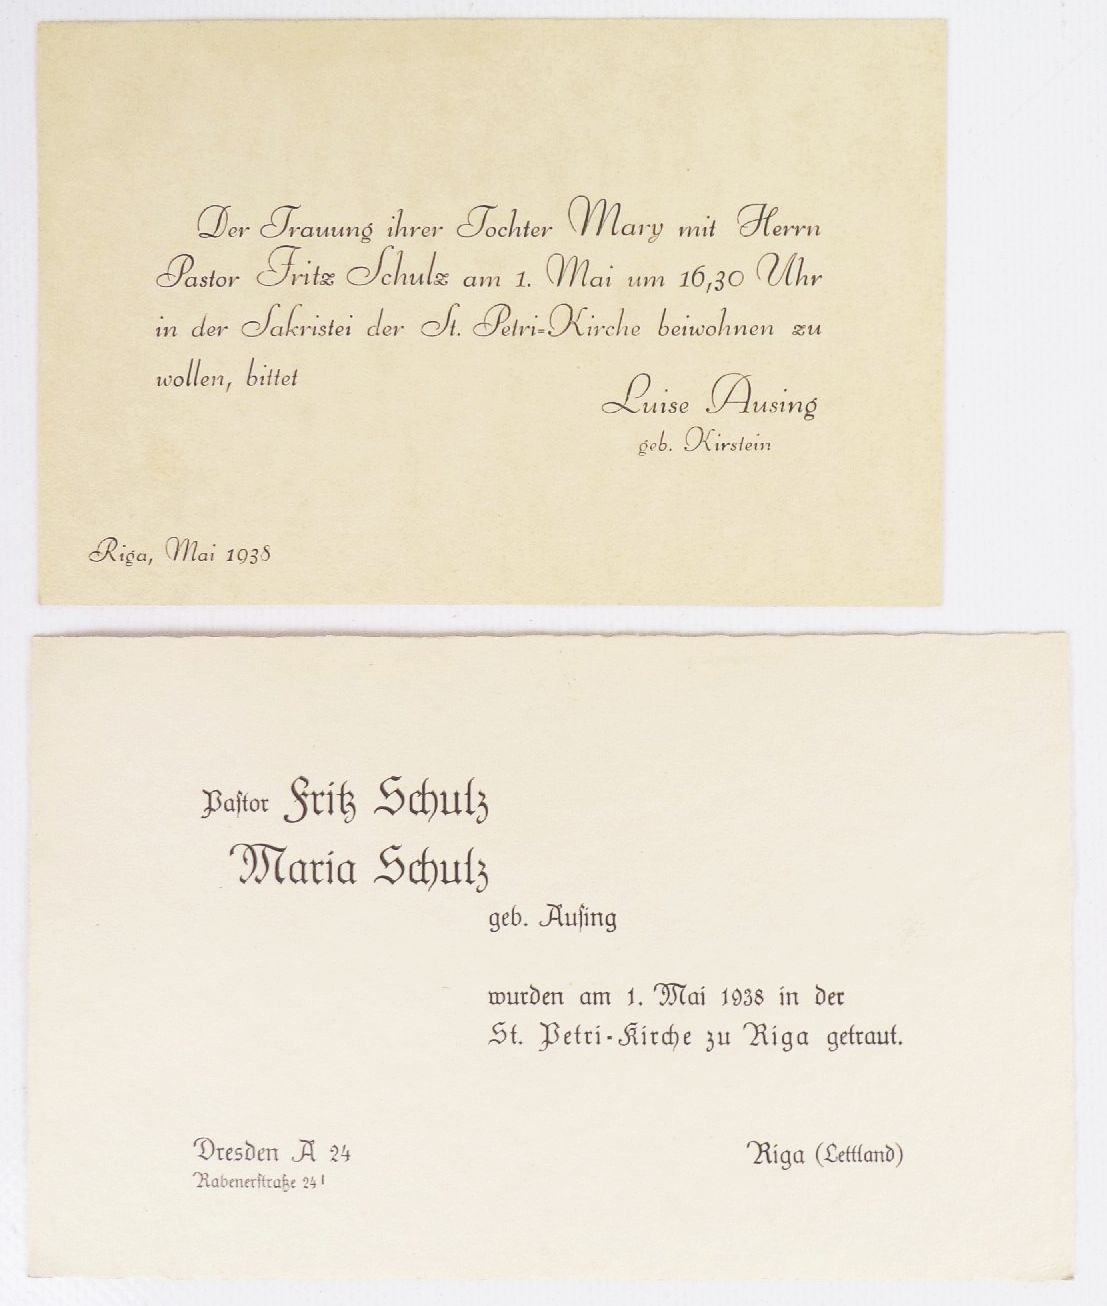 Der Trauung ihrer Tochter Mary mit Herrn
Pastor Fritz Schulz am 1. Mai um 16,30 Uhr
in der Sakristei der St. Petri-Kirche beiwohnen zu
wollen, bittet
Luise Ausing
geb. Kirstein
Riga, Mai 1938
Paſtor Fritz Schulz
Maria Schulz
geb. Auſing
wurden am 1. Mai 1938 in der
St. Petri-Kirche zu Riga getraut.
Dresden A 24
Rabenerſtraße 24 I
Riga (Lettland)